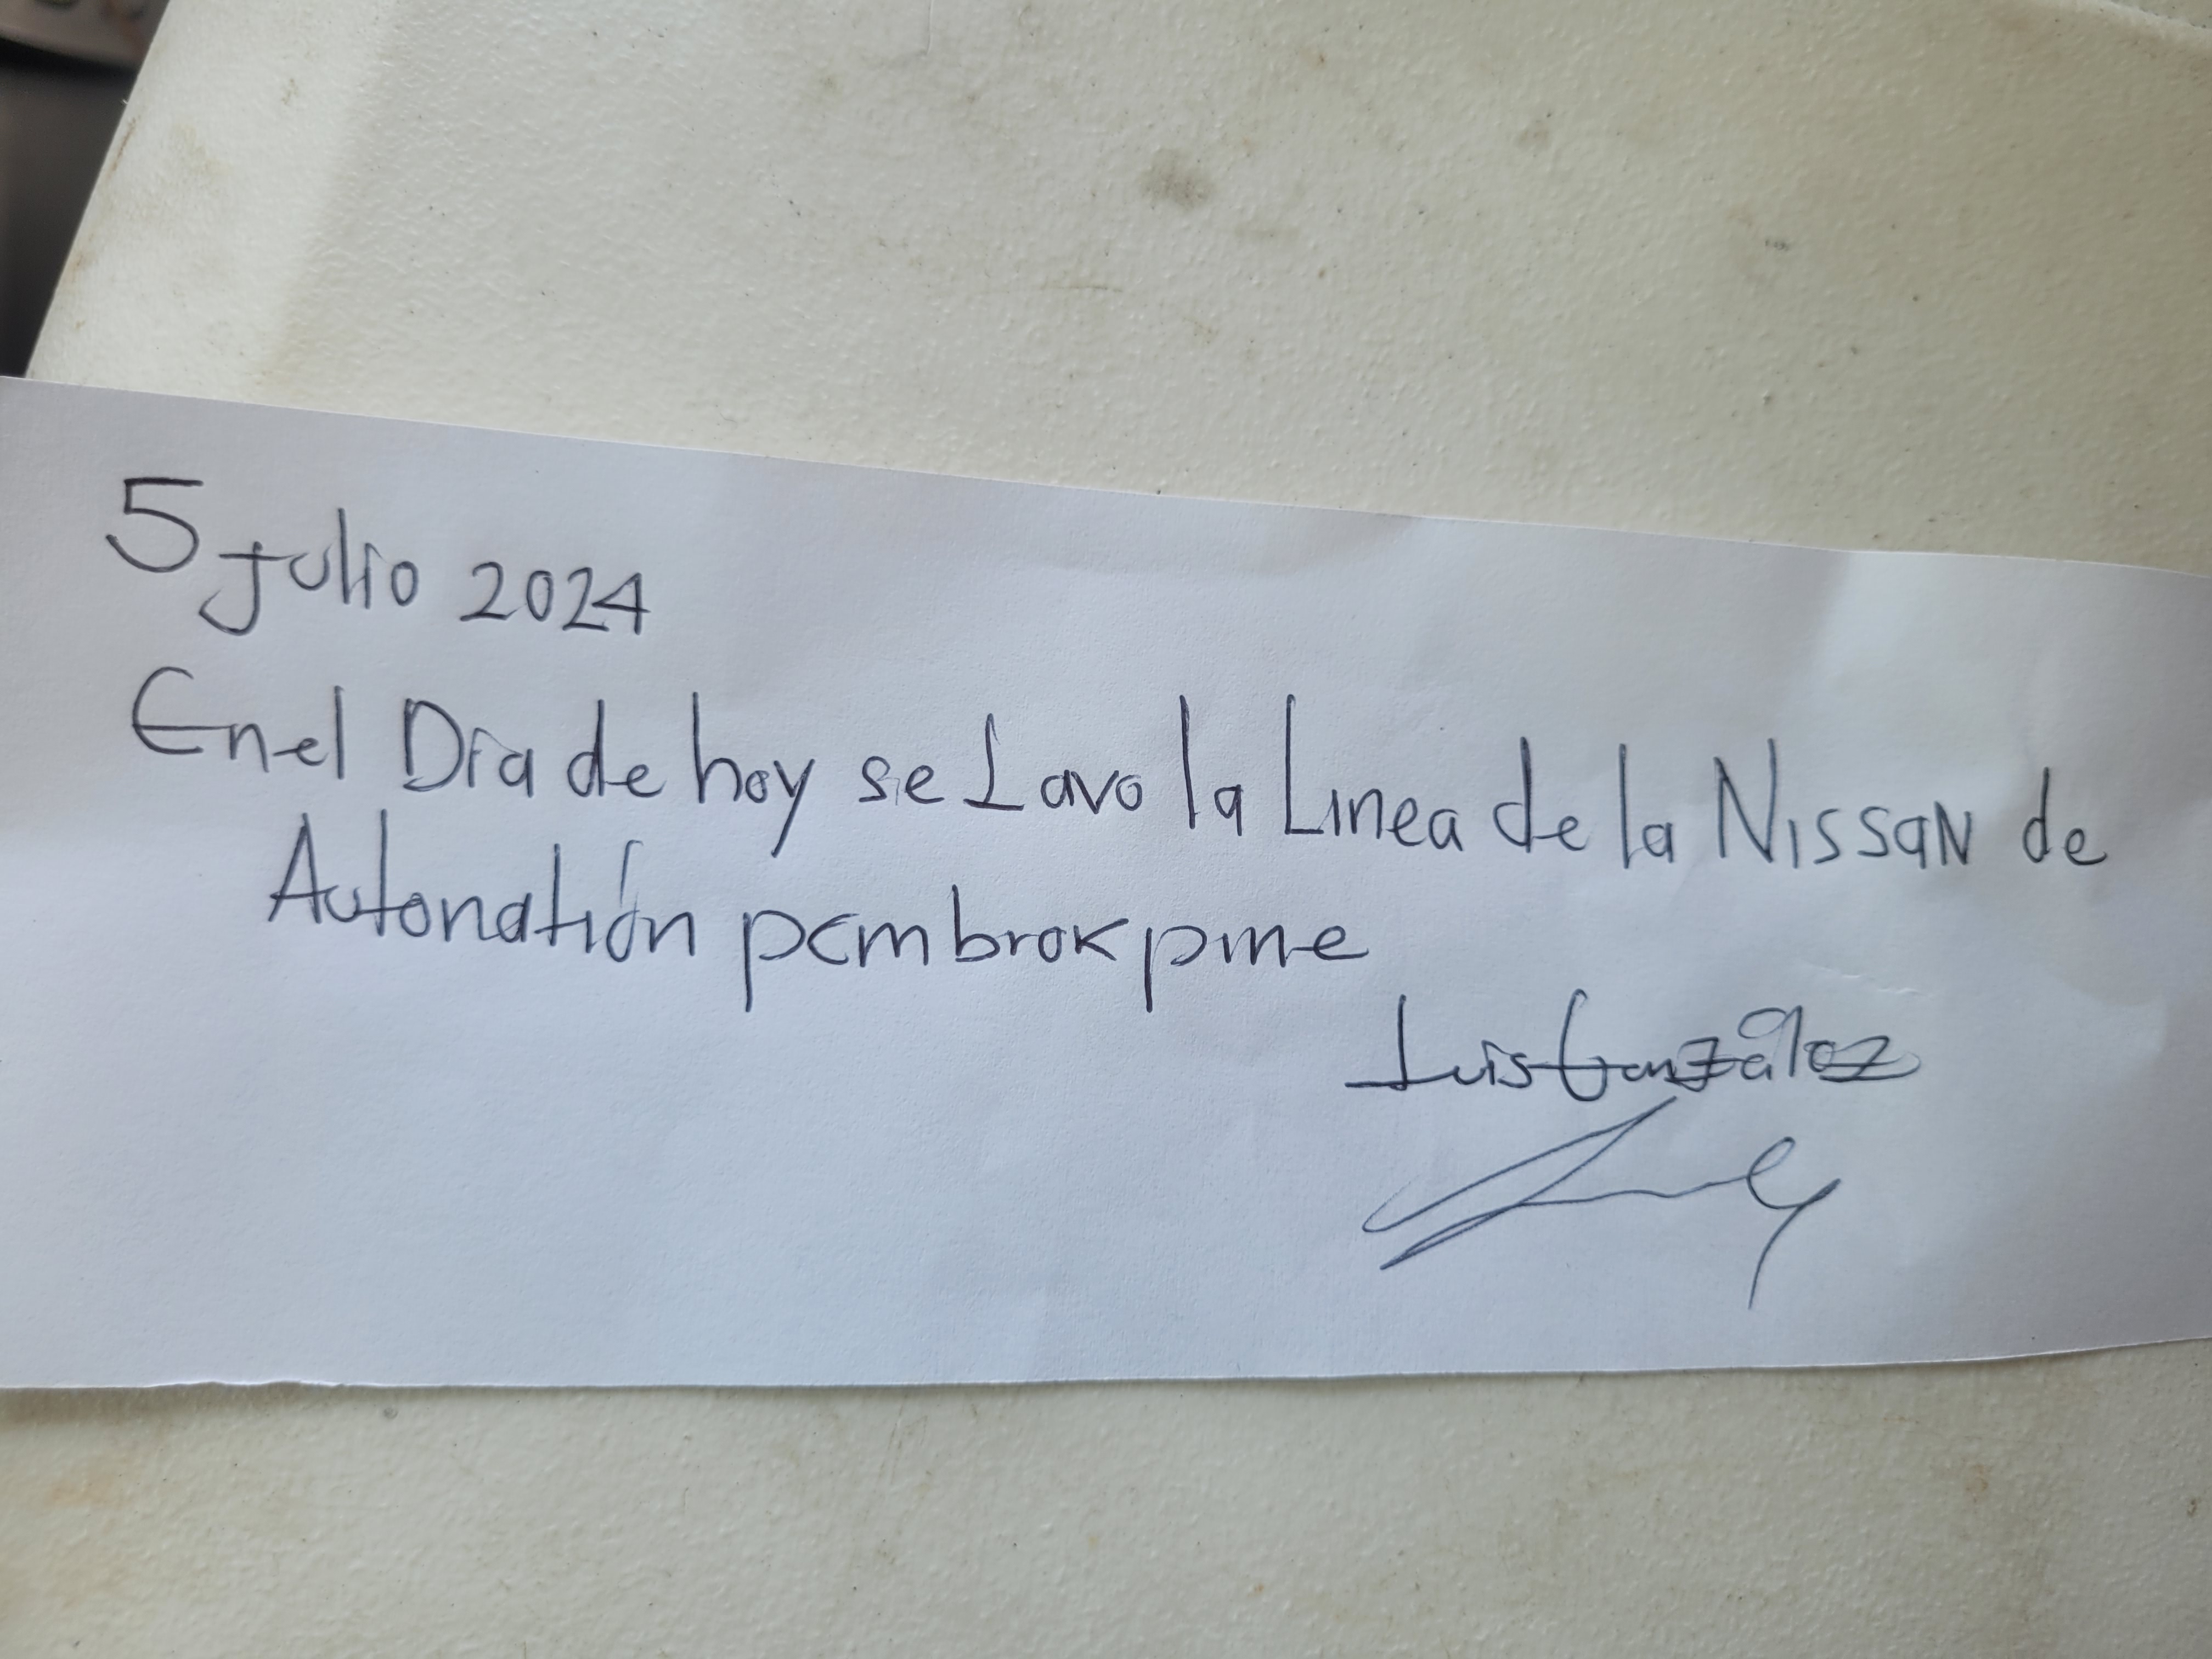 5 julio 2024
En el Dia de hoy se Lavo la Linea de la Nissan de
Autonatión pembrok pine
Luis González